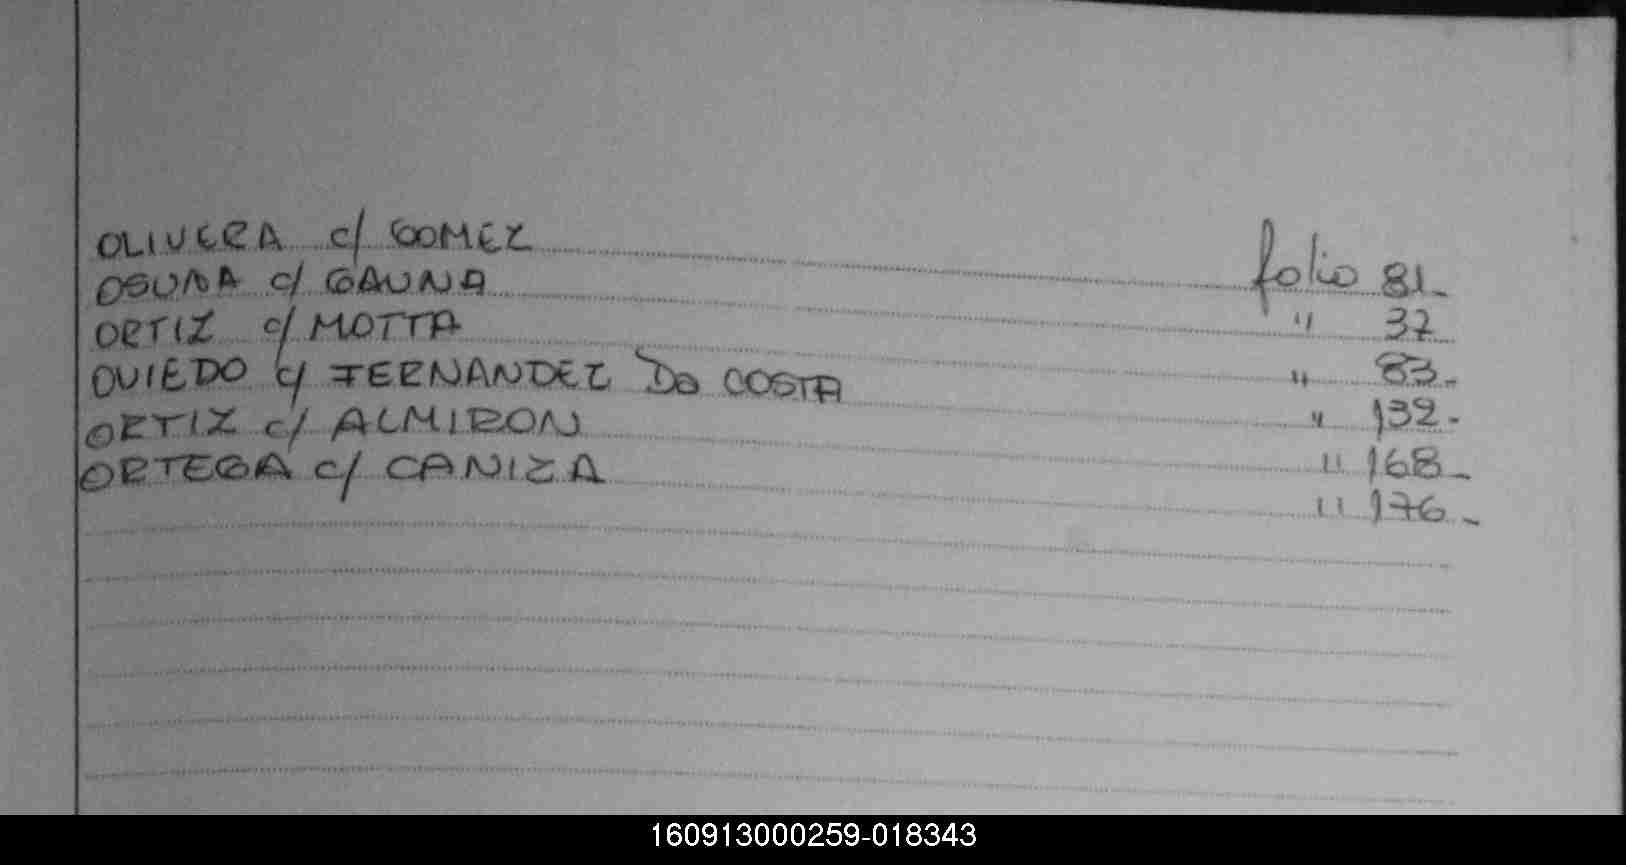 OLIVERA c/ GOMEZ folio 81-
OSUNA c/ GAUNA " 37
ORTIZ c/ MOTTA " 83-
OVIEDO c/ FERNANDEZ Do COSTA " 132-
ORTIZ c/ ALMIRON " 168-
ORTEGA c/ CANIZA " 176-
160913000259-018343